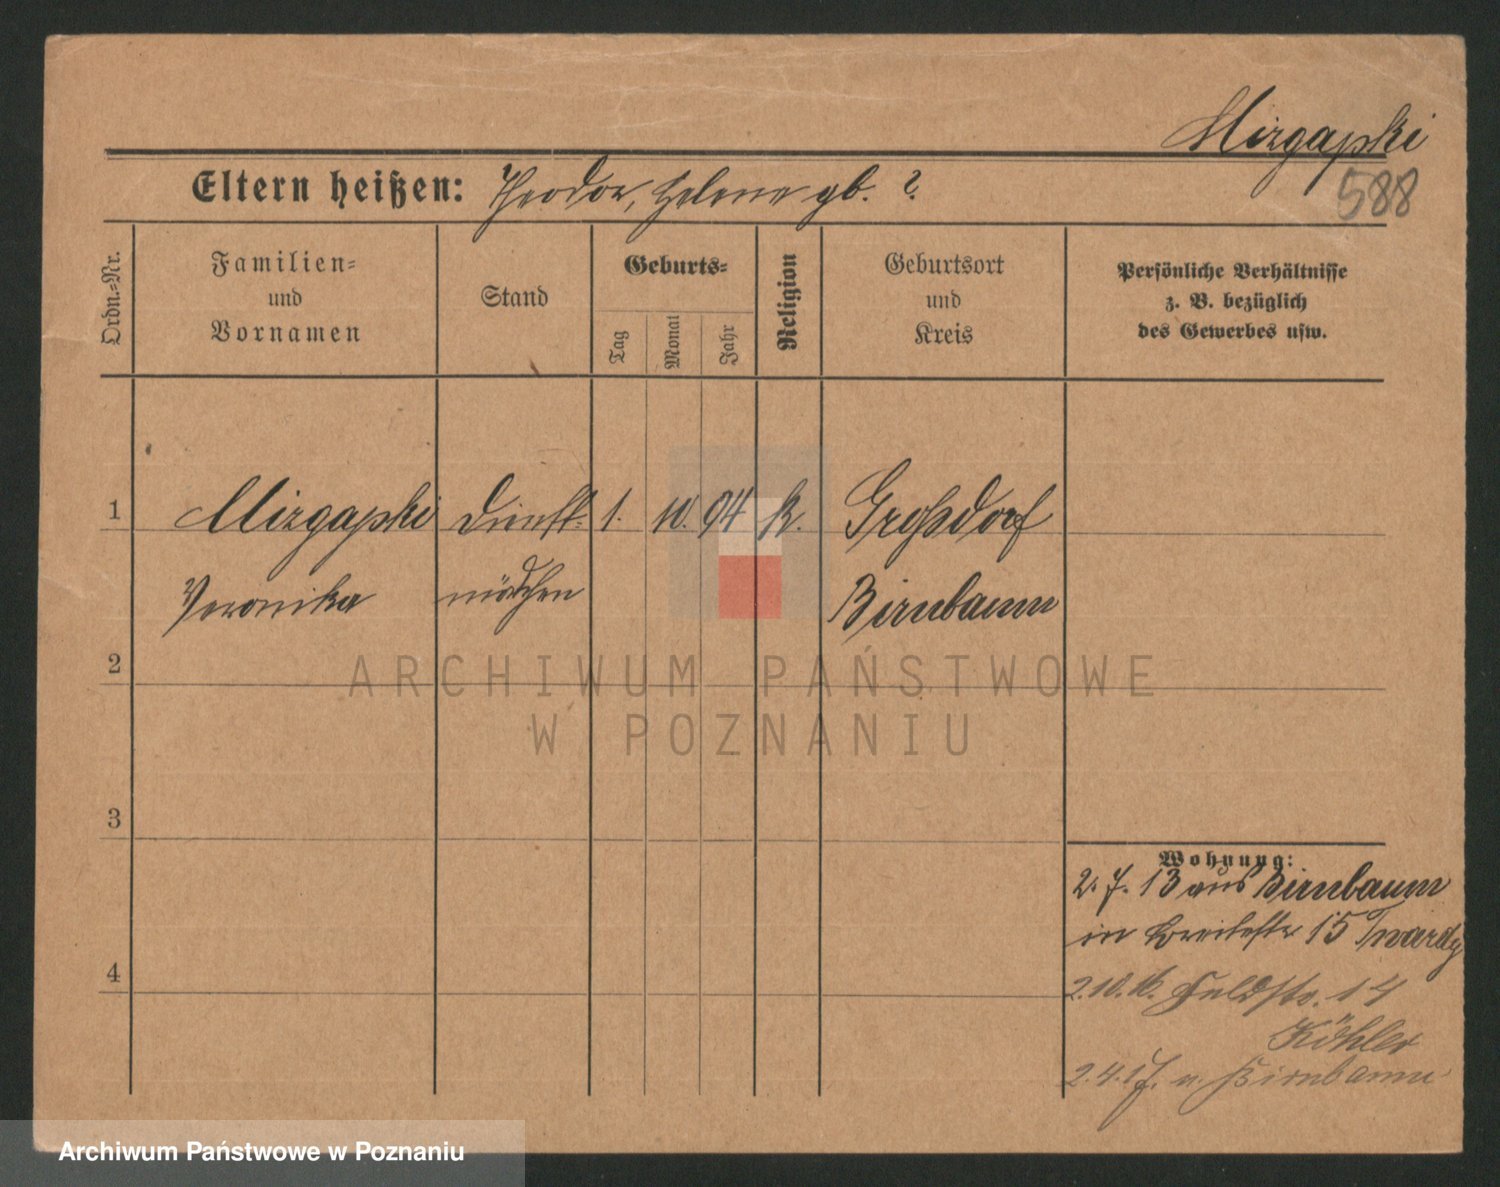 Mizgapki
588
Eltern heißen: Theodor, Helene gb. ?
Ordn.-Nr.
Familien-
und
Vornamen
Stand
Geburts-
Tag
Monat
Jahr
Religion
Geburtsort
und
Kreis
Persönliche Verhältnisse
z. B. bezüglich
des Gewerbes usw.
1 Mizgapki Dienst- 1. 10. 94 k. Großdorf
Veronika mädchen Birnbaum
2
ARCHIWUM PAŃSTWOWE
W POZNANIU
3
Wohnung:
2. 7. 13 aus Birnbaum
in Breitestr 15 Twardy
4
2.10. Feldstr. 14
Köhler
2.4.17. n. Birnbaum
Archiwum Państwowe w Poznaniu